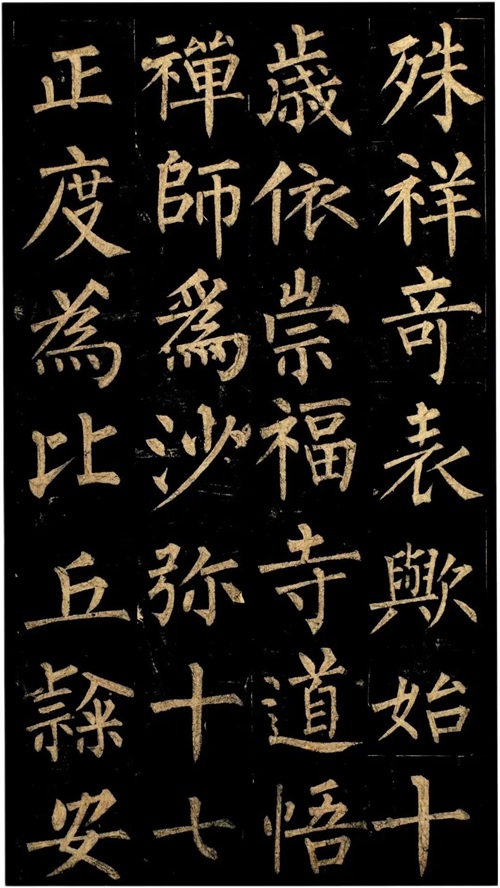 殊祥奇表歟始十
歲依崇福寺道悟
禪師爲沙弥十七
正度為比丘𨽻安